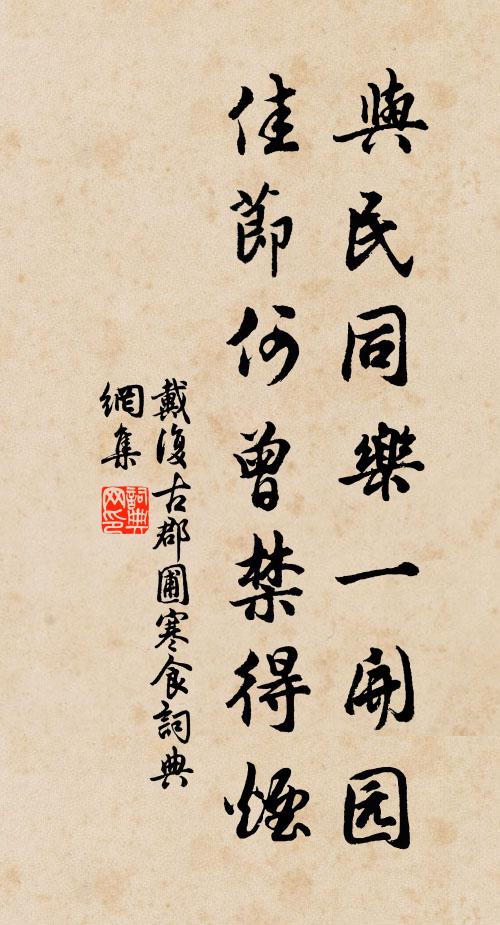 與民同樂一開园
佳節何曾禁得煙
戴復古郡圃寒食詞典
網集
詞典
网印